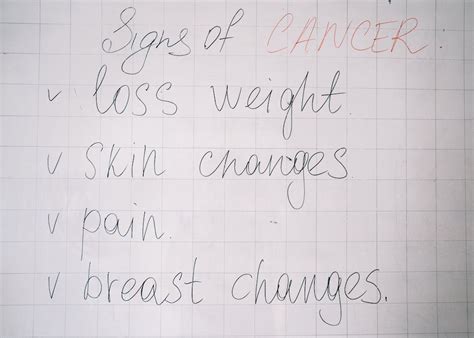 Signs of CANCER.
v loss weight.
v skin changes.
v pain.
v breast changes.